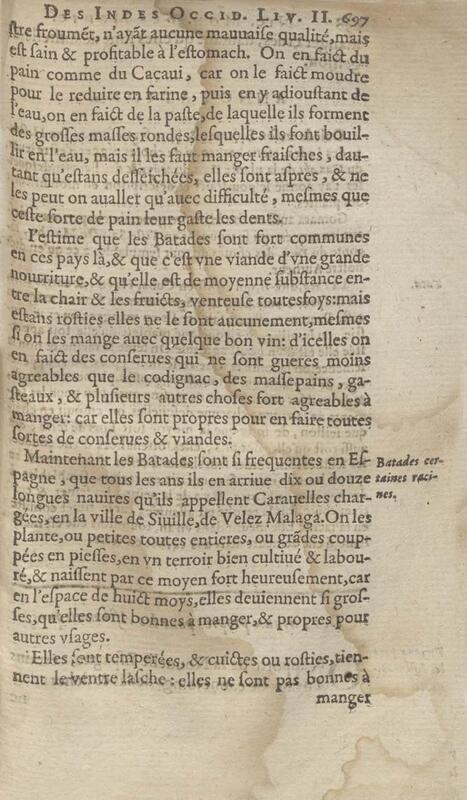 DES INDES OCCID. LIV. II. 697
ſtre froumēt, n'ayāt aucune mauuaiſe qualité, mais
eſt ſain & profitable à l'eſtomach. On en faict du
pain comme du Caçaui, car on le faict moudre
pour le reduire en farine, puis en y adiouſtant de
l'eau, on en faict de la paſte, de laquelle ils forment
des groſſes maſſes rondes, leſquelles ils font bouil-
lir en l'eau, mais il les faut manger fraiſches, dau-
tant qu'eſtans deſſeichées, elles ſont aſpres, & ne
les peut on aualler qu'auec difficulté, meſmes que
ceſte ſorte de pain leur gaſte les dents.
I'eſtime que les Batades ſont fort communes
en ces pays là, & que c'eſt vne viande d'vne grande
nourriture, & qu'elle eſt de moyenne ſubſtance en-
tre la chair & les fruicts, venteuſe toutesfoys: mais
eſtans roſties elles ne le ſont aucunement, meſmes
ſi on les mange auec quelque bon vin: d'icelles on
en faict des conſerues qui ne ſont gueres moins
agreables que le codignac, des maſſepains, ga-
ſteaux, & pluſieurs autres choſes fort agreables à
manger: car elles ſont propres pour en faire toutes
ſortes de conſerues & viandes.
Maintenant les Batades ſont ſi frequentes en Eſ-
pagne, que tous les ans ils en arriue dix ou douze
longues nauires qu'ils appellent Carauelles char-
gées, en la ville de Siuille, de Velez Malaga. On les
plante, ou petites toutes entieres, ou grādes coup-
pées en pieſſes, en vn terroir bien cultiué & labou-
ré, & naiſſent par ce moyen fort heureuſement, car
en l'eſpace de huict moys, elles deuiennent ſi groſ-
ſes, qu'elles ſont bonnes à manger, & propres pour
autres vſages.
Elles ſont temperées, & cuictes ou roſties, tien-
nent le ventre laſche: elles ne ſont pas bonnes à
manger
Batades cer-
taines raci-
nes.